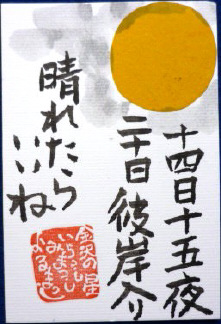 十四日十五夜
二十日彼岸入り
晴れたら
いいね